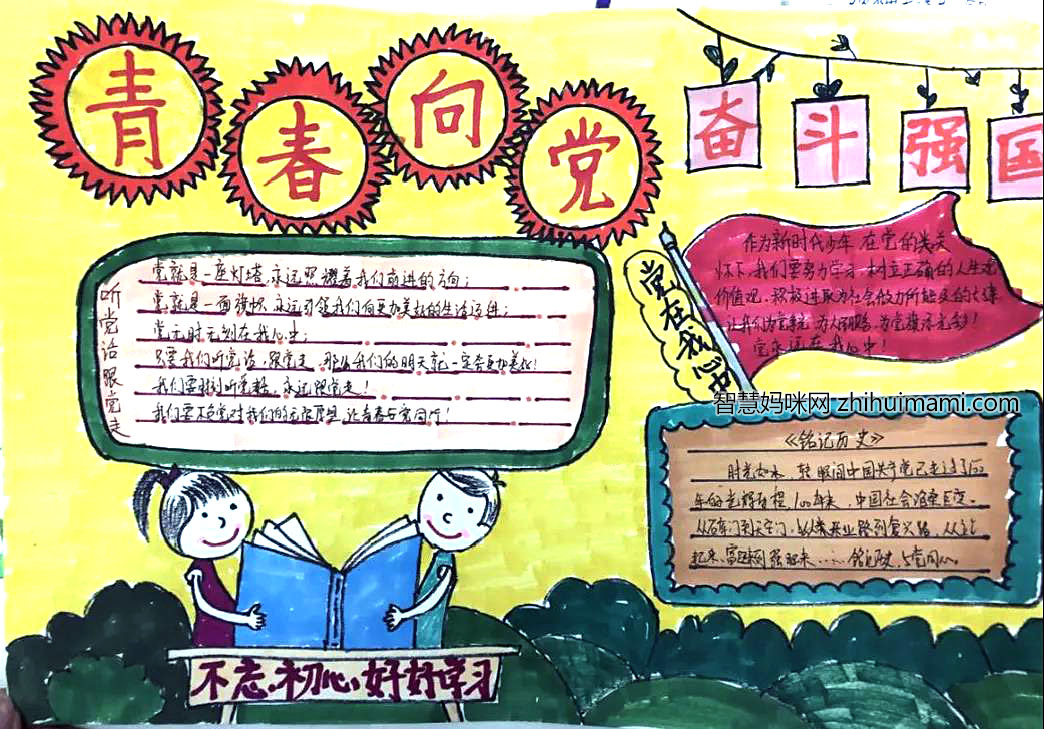 青春向党
奋斗强国
听党话 跟党走
党就是一座灯塔,永远照耀着我们前进的方向;
党就是一面旗帜,永远引领我们向更加美好的生活迈进;
党无时无刻在我心中;
只要我们听党话、跟党走,那么我们的明天就一定会更加美好!
我们要时刻听党话,永远跟党走!
我们要不负党对我们的无限厚望,让青春与党同行!
党在我心中
作为新时代少年,在党的关
怀下,我们要努力学习,树立正确的人生观
价值观,积极进取为社会做力所能及的
党永远在我心中!
智慧妈咪网 zhihuimami.com
《铭记历史》
时光如水,转眼间中国共产党已走过了100
年的光辉历程,100年来,中国社会沧桑巨变,
从石库门到天安门,从兴业路到复兴路,从站
起来、富起来到强起来……铭记历史,与党同心。
不忘初心,好好学习